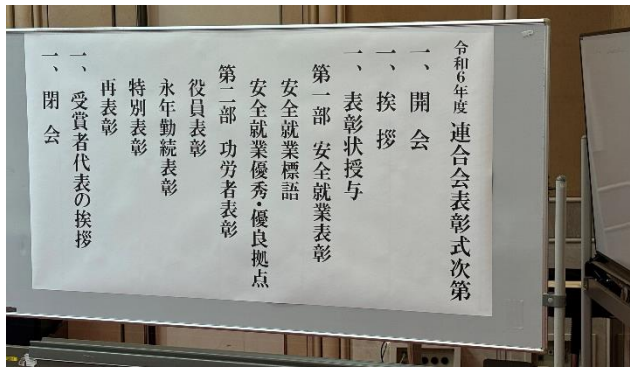 令和6年度 連合会表彰式次第
一、開会
一、挨拶
一、表彰状授与
第一部 安全就業表彰
安全就業標語
安全就業優秀・優良拠点
第二部 功労者表彰
役員表彰
永年勤続表彰
特別表彰
再表彰
一、受賞者代表の挨拶
一、閉会